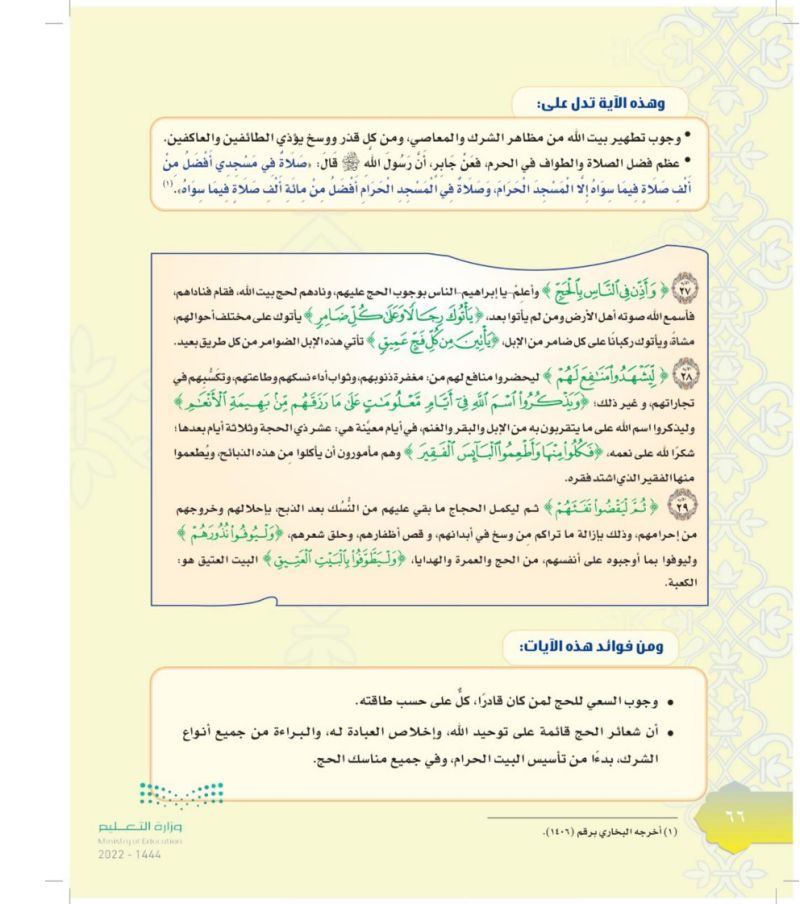 وهذه الآية تدل على:
• وجوب تطهير بيت الله من مظاهر الشرك والمعاصي، ومن كل قذر ووسخ يؤذي الطائفين والعاكفين.
• عظم فضل الصلاة والطواف في الحرم، فعَنْ جَابِرٍ، أَنَّ رَسُولَ اللهِ ﷺ قَالَ: «صَلَاةٌ فِي مَسْجِدِي أَفْضَلُ مِنْ
أَلْفِ صَلَاةٍ فِيمَا سِوَاهُ إِلَّا الْمَسْجِدَ الْحَرَامَ، وَصَلَاةٌ فِي الْمَسْجِدِ الْحَرَامِ أَفْضَلُ مِنْ مِائَةِ أَلْفِ صَلَاةٍ فِيمَا سِوَاهُ».(١)
٢٧ ﴿ وَأَذِّن فِي ٱلنَّاسِ بِٱلْحَجِّ ﴾ وأعلِمْ-يا إبراهيم-الناس بوجوب الحج عليهم، ونادهم لحج بيت الله، فقام فناداهم،
فأسمع الله صوته أهل الأرض ومن لم يأتوا بعد، ﴿ يَأْتُوكَ رِجَالًا وَعَلَىٰ كُلِّ ضَامِرٍ ﴾ يأتوك على مختلف أحوالهم،
مشاةً، ويأتوك ركبانًا على كل ضامر من الإبل، ﴿ يَأْتِينَ مِن كُلِّ فَجٍّ عَمِيقٍ ﴾ تأتي هذه الإبل الضوامر من كل طريق بعيد.
٢٨ ﴿ لِّيَشْهَدُوا۟ مَنَٰفِعَ لَهُمْ ﴾ ليحضروا منافع لهم من: مغفرة ذنوبهم، وثواب أداء نسكهم وطاعتهم، وتكسُّبهم في
تجاراتهم، و غير ذلك؛ ﴿ وَيَذْكُرُوا۟ ٱسْمَ ٱللَّهِ فِىٓ أَيَّامٍ مَّعْلُومَٰتٍ عَلَىٰ مَا رَزَقَهُم مِّنۢ بَهِيمَةِ ٱلْأَنْعَٰمِ ﴾
وليذكروا اسم الله على ما يتقربون به من الإبل والبقر والغنم، في أيام معيّنة هي: عشر ذي الحجة وثلاثة أيام بعدها؛
شكرًا لله على نعمه، ﴿ فَكُلُوا۟ مِنْهَا وَأَطْعِمُوا۟ ٱلْبَآئِسَ ٱلْفَقِيرَ ﴾ وهم مأمورون أن يأكلوا مِن هذه الذبائح، ويُطعموا
منها الفقير الذي اشتد فقره.
٢٩ ﴿ ثُمَّ لْيَقْضُوا۟ تَفَثَهُمْ ﴾ ثم ليكمل الحجاج ما بقي عليهم من النُّسُك بعد الذبح، بإحلالهم وخروجهم
مِن إحرامهم، وذلك بإزالة ما تراكم مِن وسخ في أبدانهم، و قص أظفارهم، وحلق شعرهم، ﴿ وَلْيُوفُوا۟ نُذُورَهُمْ ﴾
وليوفوا بما أوجبوه على أنفسهم، من الحج والعمرة والهدايا، ﴿ وَلْيَطَّوَّفُوا۟ بِٱلْبَيْتِ ٱلْعَتِيقِ ﴾ البيت العتيق هو:
الكعبة.
ومن فوائد هذه الآيات:
• وجوب السعي للحج لمن كان قادرًا، كلٌّ على حسب طاقته.
• أن شعائر الحج قائمة على توحيد الله، وإخلاص العبادة له، والبراءة من جميع أنواع
الشرك، بدءًا من تأسيس البيت الحرام، وفي جميع مناسك الحج.
(١) أخرجه البخاري برقم (١٤٠٦).
٦٦
وزارة التعليم
Ministry of Education
2022 - 1444